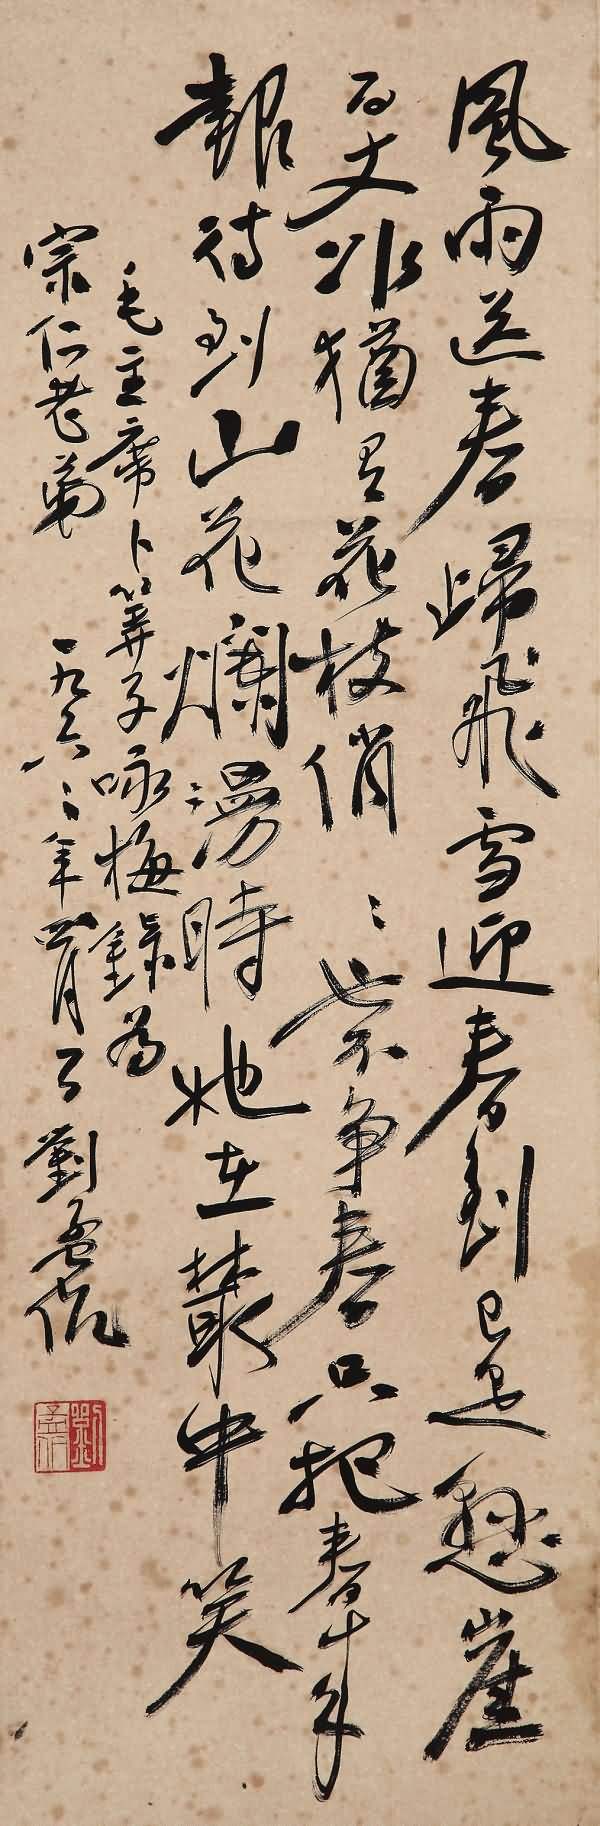 風雨送春歸飛雪迎春到已是懸崖
百丈冰猶有花枝俏〻也不争春只把春来
報待到山花爛漫時她在叢中笑
毛主席卜算子咏梅録為
宗仁老弟 一九六二年四月 劉孟伉
劉孟伉